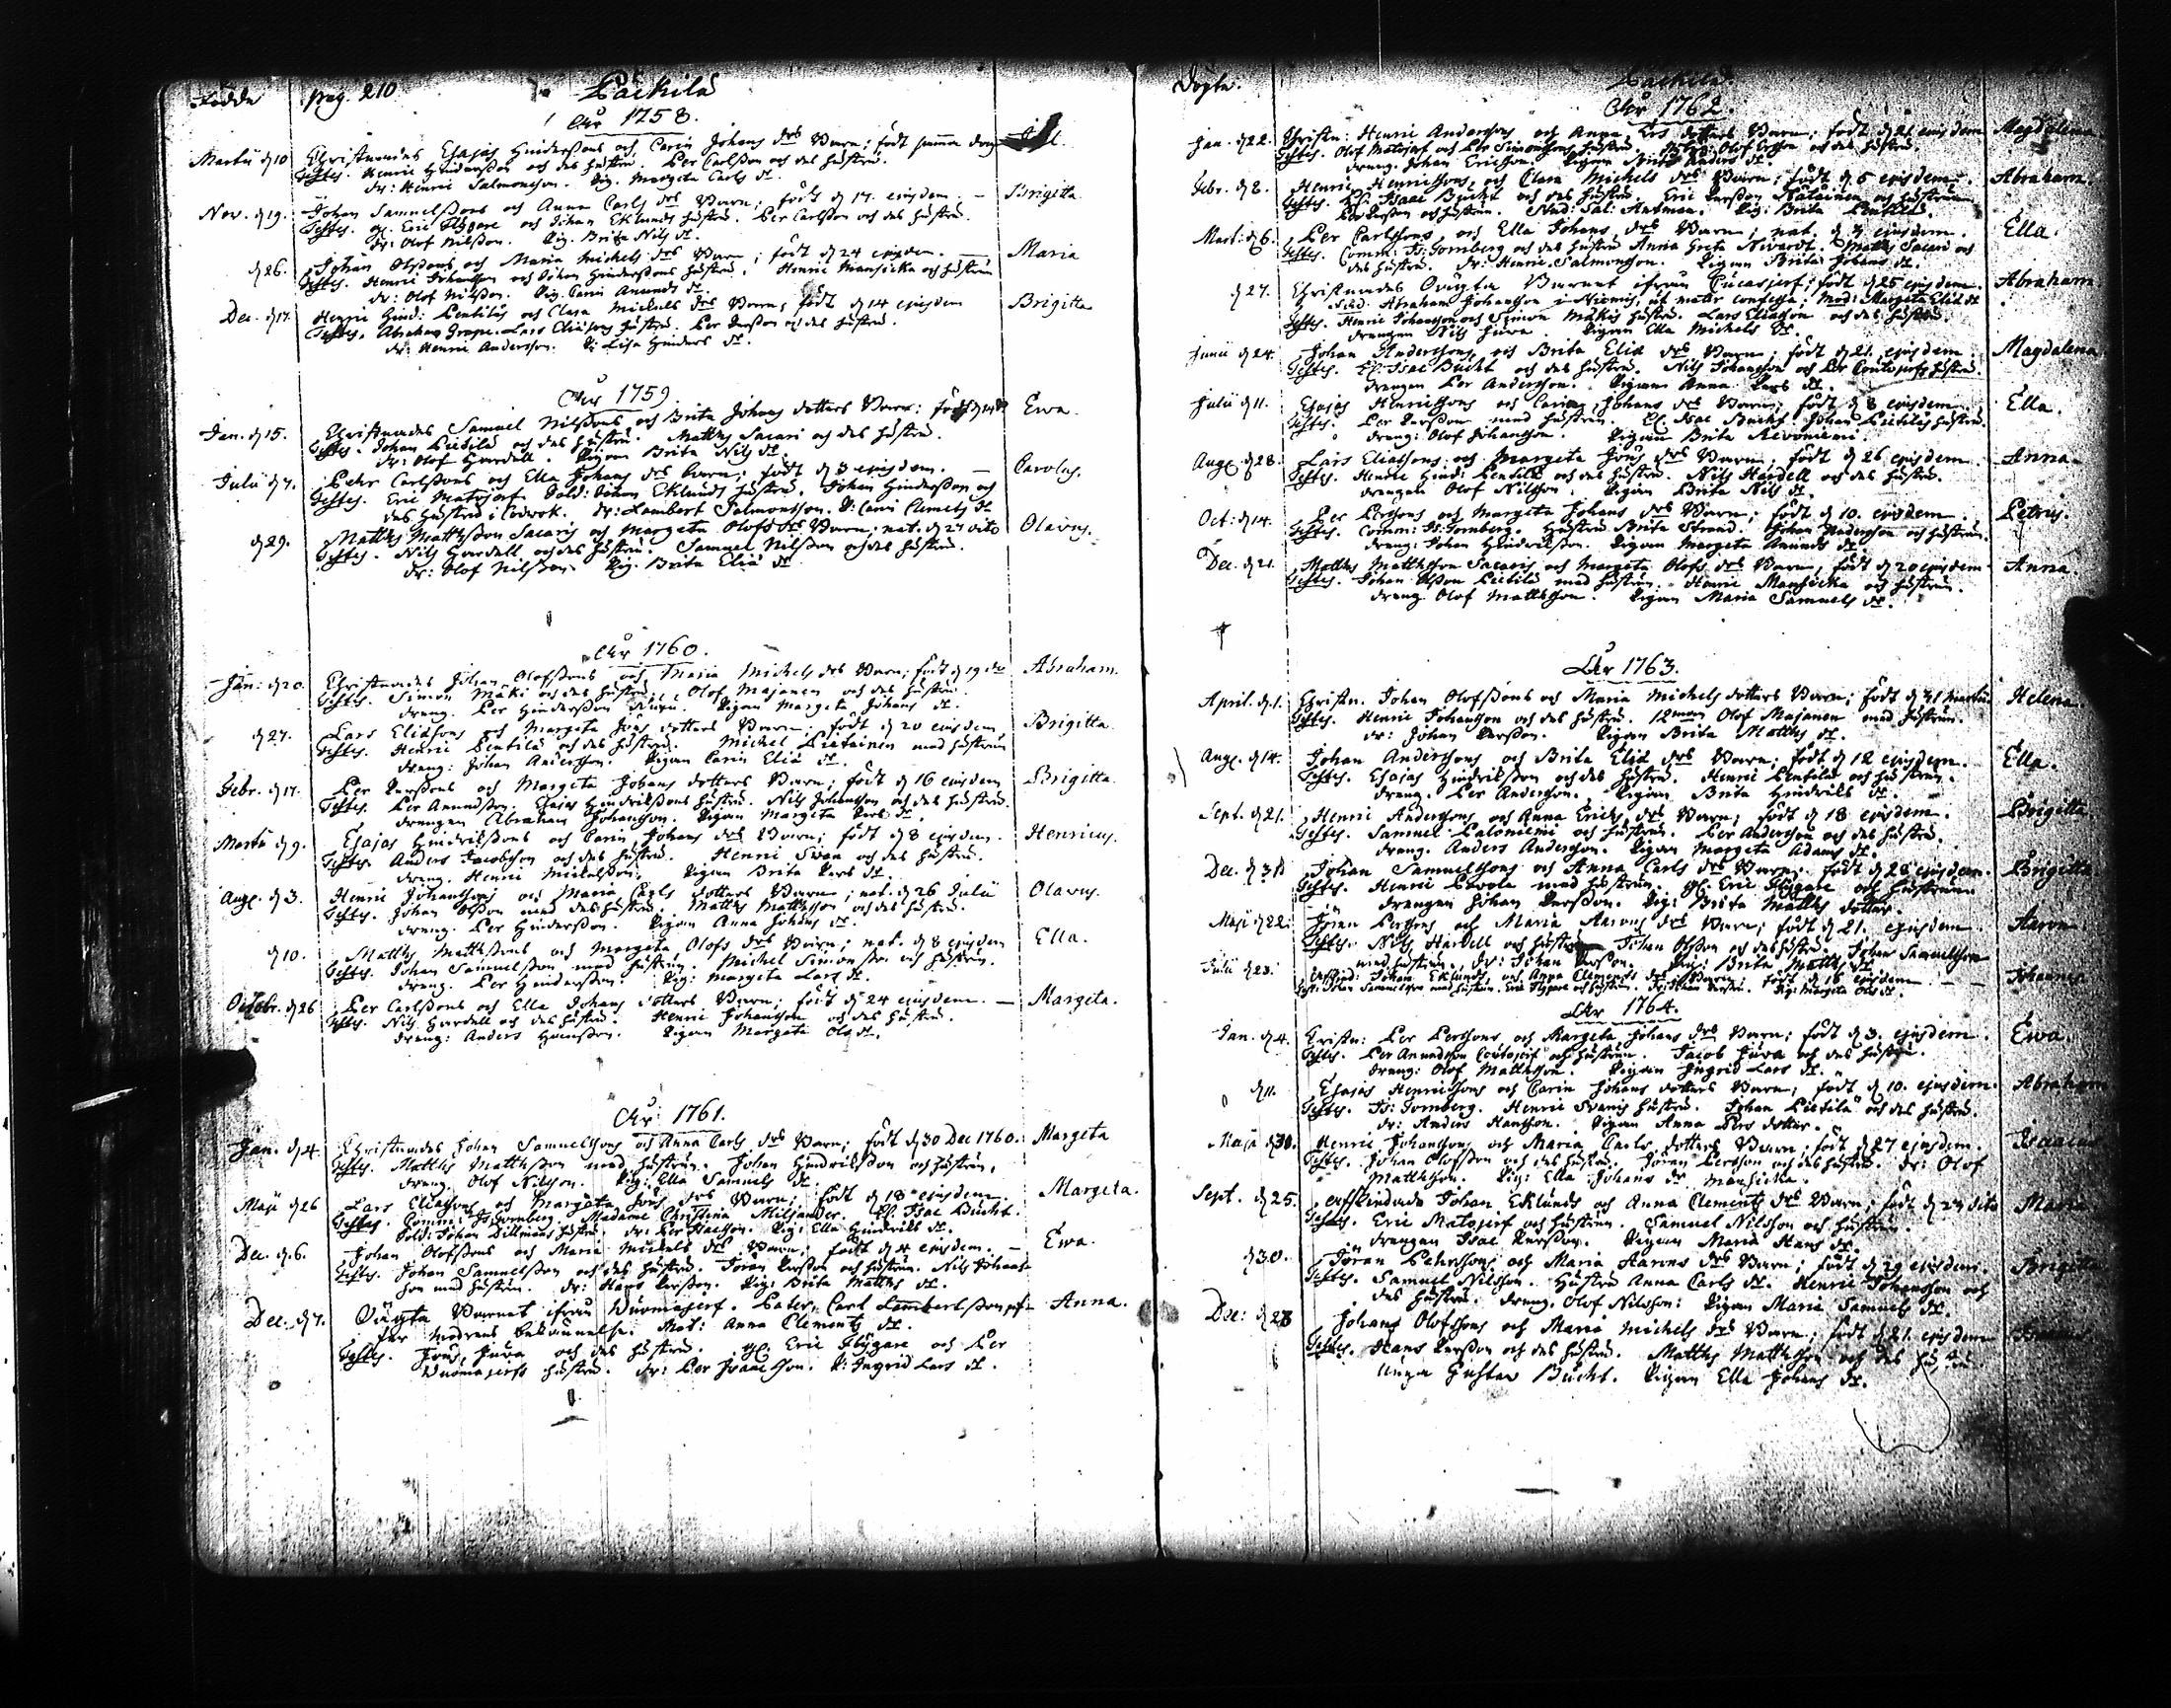 Födde pag. 210 Päckilä
Åhr 1758.
Martii d 10 Christnades Esajas Hinderssons och Carin Johans drs Barn; född samma dag
Testes. Henric Hindersson och des hustru. Per Carlsson och des hustru.
dr: Henric Salmonsson. Pig. Margeta Carls dr.
Nov. d 19. Johan Samuelssons och Anna Carls drs Barn; född d 17. ejusdem. — Brigitta.
Testes. Eric Flygare och Johan Eklunds hustru. Per Carlsson och des hustru.
dr: Olof Nilsson. Pig. Brita Nils dr.
d 26. Johan Olssons och Maria Michels drs Barn; född d 24 ejusdem. — Maria
Testes. Henric Johansson och Johan Hinderssons hustru. Henric Mansicka och hustru
dr: Olof Nilsson. Pig. Carin Anunds dr.
Dec. d 17. Henric Hind: Pentiläs och Clara Michels drs Barn; född d 14 ejusdem Brigitta
Testes. Abraham Grape. Lars Eliæsons hustru. Per Persson och des hustru.
dr: Henric Andersson. P: Lisa Hinders dr.
Åhr 1759.
Jan. d 15. Christnades Samuel Nilssons och Brita Johans dotters Barn: född d 14 Ewa.
Testes. Johan Pietilä och des hustru. Matths Sacari och des hustru.
dr: Olof Hardell. Pigan Brita Nils dr.
Julii d 7. Pehr Carlssons och Ella Johans drs Barn; född d 3 ejusdem. — Carolus.
Testes. Eric Matojerf. Sold: Johan Eklunds hustru. Johan Hindersson och
des hustru i Torwok. dr: Lambert Salmonsson. P: Carin Clemets dr
d 29. Matths Matthsson Sacaris och Margeta Olofs drs Barn; nat. d 27 dito Olavus.
Testes. Nils Hardell och des hustru. Samuel Nilsson och des hustru.
dr: Olof Nilsson. Pig. Brita Eliæ dr
Åhr 1760.
Jan: d 20. Christnades Johan Olofssons och Maria Michels drs Barn; född d 19 do Abraham.
Testes. Simon Mäki och des hustru. Olof Majanen och des hustru.
dreng. Per Hindersson. Pigan Margeta Johans dr.
d 27. Lars Eliæsons och Margeta Jöns dotters Barn; född d 20 ejusdem Brigitta.
Testes. Henric Pentilä och des hustru. Michel Pietainen med hustrun
dreng: Johan Andersson. Pigan Carin Eliæ dr.
Febr. d 17. Per Perssons och Margeta Johans dotters Barn; född d 16 ejusdem Brigitta.
Testes. Per Anundsson. Esajas Hindrikssons hustru. Nils Johansson och des hustru.
drengen Abraham Johansson. Pigan Margeta Pers dr.
Martii d 9. Esajas Hindrikssons och Carin Johans drs Barn; född d 8 ejusdem. Henricus.
Testes. Anders Jacobsson och des hustru. Henric Swan och des hustru.
dreng. Henric Mickelsson. Pigan Brita Pers dr.
Aug. d 3. Henric Johanssons och Maria Carls dotters Barn; nat. d 26 Julii Olavus.
Testes. Johan Olsson med des hustru. Matths Matthsson och des hustru.
dreng. Per Hindersson. Pigan Anna Johans dr.
d 10. Matths Matthssons och Margeta Olofs drs Barn; nat. d 8 ejusdem Ella.
Testes. Johan Samuelsson med hustrun. Michel Simonsson och hustrun.
dreng. Per Hindersson. Pig: Margeta Lars dr.
Octobr. d 26 Per Carlssons och Ella Johans dotters Barn; född d 24 ejusdem. — Margeta.
Testes. Nils Hardell och des hustru. Henric Johansson och des hustru.
dreng: Anders Hansson. Pigan Margeta Ols dr.
Åhr 1761.
Jan. d 4. Christnades Johan Samuelssons och Anna Carls drs Barn; född d 30 Dec 1760. Margeta
Testes. Matths Matthsson med hustrun. Johan Hindriksson och hustrun.
dreng. Olof Nilsson. Pig: Ella Samuels dr.
Maji d 26 Lars Eliæsons och Margeta Jöns drs Barn; född d 18 ejusdem. Margeta.
Testes. Comm: Is: Fornberg. Madame Christina Miljander. Isac Bucht.
Sold: Johan Dillmans hustru. dr: Per Isacsson. Pig: Ella Hindriks dr.
Dec. d 6. Johan Olofssons och Maria Michels drs Barn; född d 4 ejusdem. — Ewa.
Testes. Johan Samuelsson och des hustru. Jöran Persson och hustrun. Nils Johans-
son med hustrun. dr: Hans Persson. Pig: Brita Matths dr.
Dec. d 7. Oägta Barnet ifrån Wuomajerf. Pater, Carl Lambertsson Anna.
för modrens bekännelse. Mat: Anna Clements dr.
Testes. Jöns Juva och des hustru. Eric Flygare och Per
Wuomajerfs hustru. dr: Per Isaacsson. P: Ingrid Lars dr.
Döpte. Päckilä.
Åhr 1762.
Jan. d 22. Christn: Henric Anderssons och Anna Ers dotters Barn; född d 21 ejusdem Magdalena.
Testes. Olof Matojerf och Per Simonssons hustru. Olof Ersson och des hustru
dreng. Johan Ericsson. Pigan Anders dr.
Febr. d 8. Henric Henrikssons och Clara Michels drs Barn; född d 6 ejusdem. Abraham.
Testes. Isaac Bucht och des hustru. Eric Persson och hustrun
Per Persson och hustrun. Stud: Sal: Antman. Pig: Brita
Mart: d 6. Per Carlssons och Ella Johans drs Barn; nat. d 3 ejusdem. Ella.
Testes. Comm: Is: Fornberg och des hustru Anna Greta Nevardt. Matths Sacari och
des hustru. dr: Henric Salmonsson. Pigan Brita Johans dr.
d 27. Christnades Oägta Barnet ifrån Cucasjerf; född d 25 ejusdem. Abraham
Abraham Johansson i Niemis, ut mater confessa. Mod: Margeta Eliæ dr
Testes. Henric Johansson och Simon Mäkis hustru. Lars Eliæson och des hustru
drengen Nils Juva. Pigan Ella Michels dr.
Junii d 24. Johan Anderssons och Brita Eliæ drs Barn; född d 21. ejusdem. Magdalena
Testes. Isac Bucht och des hustru. Nils Johansson och Per Coutojerfs hustru.
drengen Per Andersson. Pigan Anna Pers dr.
Julii d 11. Esajas Henricssons och Carin Johans drs Barn; född d 8 ejusdem. Ella.
Testes. Per Persson med hustrun. Isac Bucht. Johan Pietiläs hustru.
dreng: Olof Johansson. Pigan Brita Aivoniemi.
Aug. d 28. Lars Eliæsons och Margeta Jöns drs Barn; född d 26 ejusdem. Anna.
Testes. Henric Hind: Pentilä och des hustru. Nils Hardell och des hustru.
drengen Olof Nilsson. Pigan Brita Nils dr.
Oct: d 14. Per Perssons och Margeta Johans drs Barn; född d 10. ejusdem. Petrus.
Testes. Comm: Is: Fornberg. Hustru Brita Strand. Johan Andersson och hustrun.
dreng: Johan Hindriksson. Pigan Margeta Anunds dr.
Dec. d 21. Matths Matthsson Sacaris och Margeta Olofs drs Barn; född d 20 ejusdem. Anna
Testes. Johan Olsson Pietilä med hustrun. Henric Mansicka och hustrun.
dreng Olof Matthsson. Pigan Maria Samuels dr.
Åhr 1763.
April. d 1. Christn. Johan Olofssons och Maria Michels dotters Barn; född d 31 Martii Helena.
Testes. Henric Johansson och des hustru. 12man Olof Majanen med hustrun.
dr: Johan Persson. Pigan Brita Matths dr.
Aug. d 14. Johan Anderssons och Brita Eliæ drs Barn; född d 12 ejusdem. Ella.
Testes. Esajas Hindriksson och des hustru. Henric Pentilä och hustrun.
dreng. Per Andersson. Pigan Brita Hindriks dr.
Sept. d 21. Henric Anderssons och Anna Erics drs Barn; född d 18 ejusdem. Brigitta
Testes. Samuel Paloniemi och hustrun. Per Andersson och des hustru.
dreng. Anders Andersson. Pigan Margeta Adams dr.
Dec. d 31 Johan Samuelssons och Anna Carls drs Barn; född d 28 ejusdem. Brigitta
Testes. Henric med hustrun. Eric Flygare och hustrun
drengen Johan Persson. Pig: Brita Matths dotter.
Maji d 22. Jöran Perssons och Maria Aarons drs Barn; född d 21. ejusdem. Aaron
Testes. Nils Hardell och hustru. Johan Olsson och des hustru. Johan Samuelsson
med hustrun. dr: Johan Persson. Pig: Brita Matths dr
Julii d 23. Johan Eklunds och Anna Clements drs Barn; född d 16 ejusdem — Johannes
Johan Samuelsson med hustrun. Eric Flygare och hustrun. Pig: Margeta Ols dr.
Åhr 1764.
Jan. d 4. Christn: Per Perssons och Margeta Johans drs Barn; född d 3. ejusdem. Ewa.
Testes. Per Anundsson Coutojerf och hustrun. Jacob Juva och des hustru.
dreng: Olof Matthsson. Pigan Ingrid Lars dr.
d 11. Esajas Henricssons och Carin Johans dotters Barn; född d 10. ejusdem. Abraham
Testes. Is: Fornberg. Henric Svanis hustru. Johan Pietilä och des hustru.
dr: Anders Hansson. Pigan Anna Pers dotter.
Maji d 30. Henric Johanssons och Maria Carls dotters Barn; född d 27 ejusdem. Isaacus
Testes. Johan Olofsson och des hustru. Jöran Persson och des hustru. dr: Olof
Matthsson. Pig: Ella Johans dr Mansicka.
Sept. d 25. afskedade Johan Eklunds och Anna Clements drs Barn; född d 24 dito Maria
Testes. Eric Matojerf och hustrun. Samuel Nilsson och hustrun.
drengen Isac Persson. Pigan Maria Hans dr.
d 30. Jöran Pehrssons och Maria Aarons drs Barn; född d 29 ejusdem. Brigitta
Testes. Samuel Nilsson. Hustru Anna Carls dr. Henric Johansson och
des hustru. dreng. Olof Nilsson: Pigan Maria Samuels dr.
Dec: d 28 Johans Olofssons och Maria Michels drs Barn; född d 21. ejusdem
Testes. Hans Persson och des hustru. Matths Matthsson och des hustru
unga Gustav Bucht. Pigan Ella Johans dr.